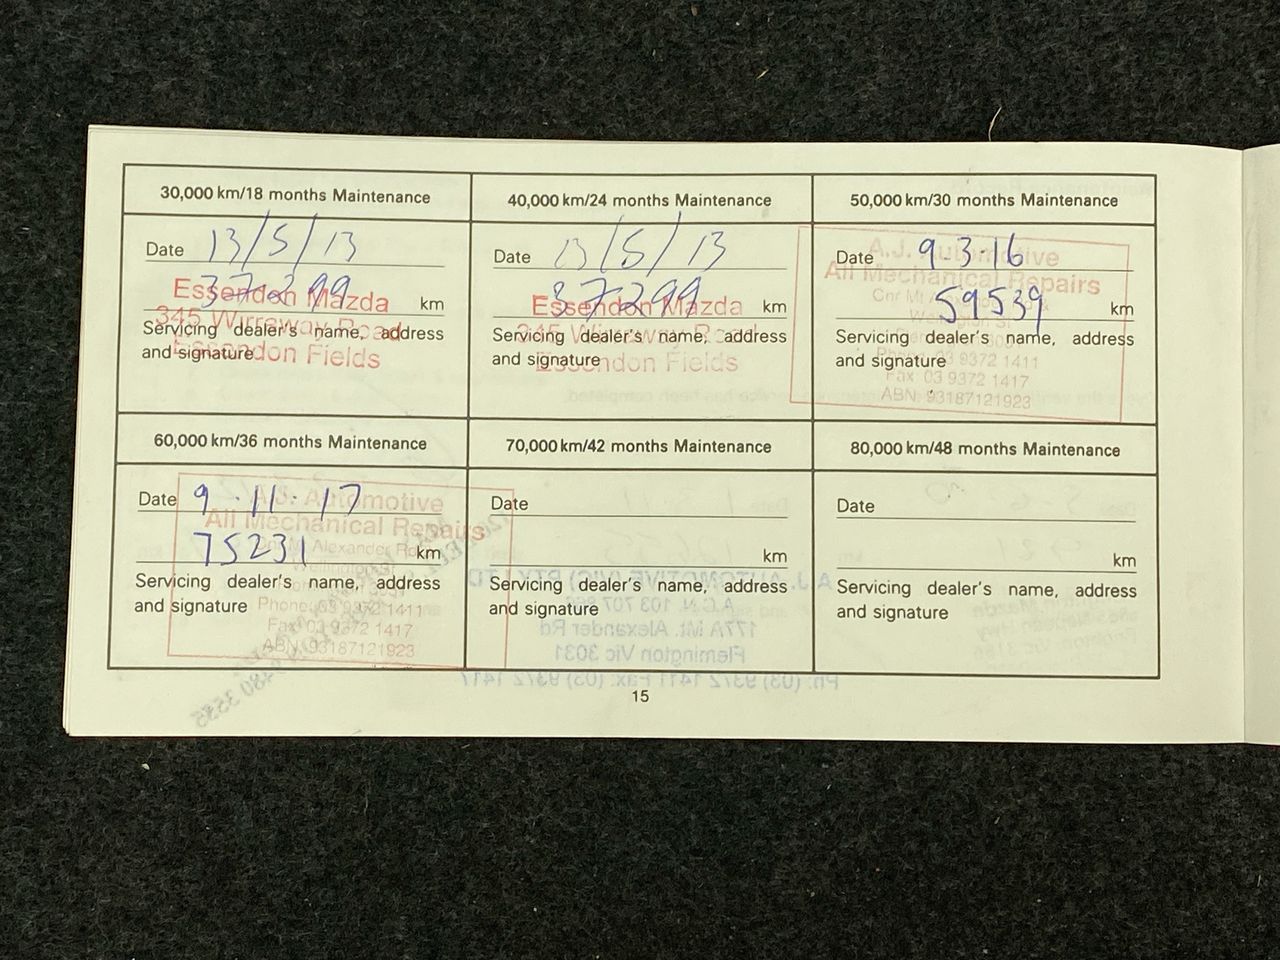 30,000 km/18 months Maintenance
Date 13/5/13
37299 km
Essendon Mazda
345 Wirraway Road
Essendon Fields
Servicing dealer's name, address
and signature
40,000 km/24 months Maintenance
Date 13/5/13
37299 km
Essendon Mazda
345 Wirraway Road
Essendon Fields
Servicing dealer's name, address
and signature
50,000 km/30 months Maintenance
Date 9-3-16
59539 km
A.J. Automotive
All Mechanical Repairs
Phone: 03 9372 1411
Fax 03 9372 1417
ABN: 93187121923
Servicing dealer's name, address
and signature
60,000 km/36 months Maintenance
Date 9.11.17
75231 km
A.J. Automotive
All Mechanical Repairs
Alexander Rd
Phone: 03 9372 1411
Fax 03 9372 1417
ABN: 93187121923
Servicing dealer's name, address
and signature
70,000 km/42 months Maintenance
Date
km
Servicing dealer's name, address
and signature
80,000 km/48 months Maintenance
Date
km
Servicing dealer's name, address
and signature
15